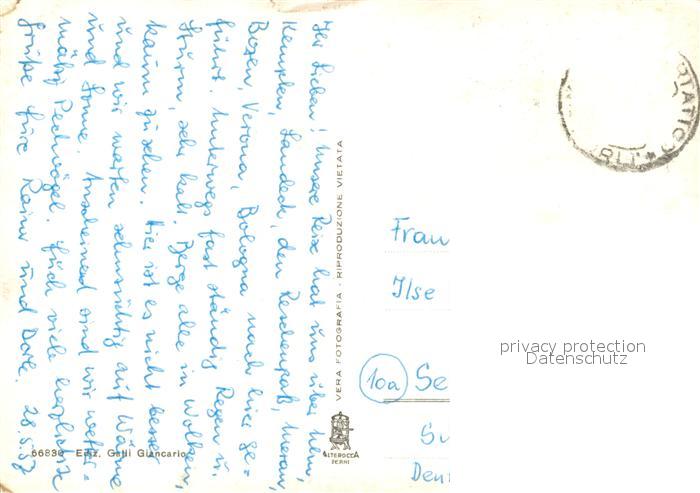 Ihr Lieben! Unsere Reise hat uns über Ulm,
Kempten, Landeck, den Reschenpaß, Meran,
Bozen, Verona, Bologna nach hier ge=
führt. Unterwegs fast ständig Regen u.
Sturm, sehr kalt. Berge alle in Wolken,
kaum zu sehen. Hier ist es nicht besser
und wir warten sehnsüchtig auf Wärme
und Sonne. Anscheinend sind wir wetter-
mäßig Pechvögel. Euch viele herzliche
Grüße Eure Rainer und Dore. 28.5.57
VERA FOTOGRAFIA - RIPRODUZIONE VIETATA
66836 Ediz. Galli Giancarlo
ALTEROCCA
TERNI
Frau
Ilse
10a Se
Deut
privacy protection
Datenschutz